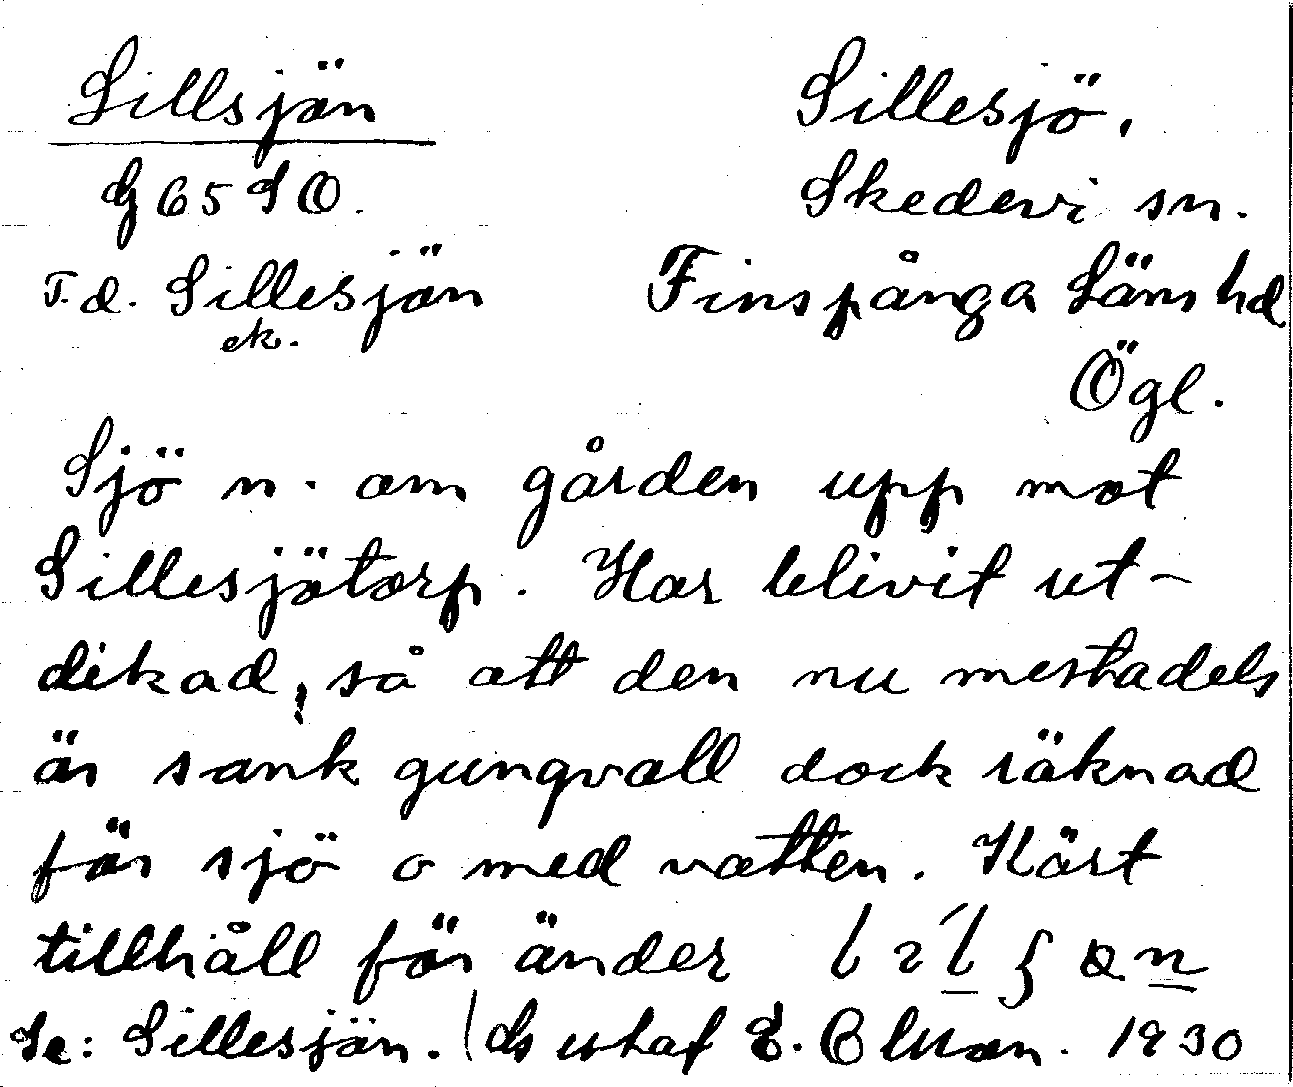 Sillsjön
Sillesjö.
G 65 SO.
Skedevi sn.
T.d. Sillesjön
ek.
Finspånga Läns hd
Ögl.
Sjö n. om gården upp mot
Sillesjötorp. Har blivit ut-
dikad, så att den nu mestadels
är sank gungvall dock räknad
för sjö o med vatten. Kärt
tillhåll för änder
Se: Sillesjön. E. Ohlson. 1930